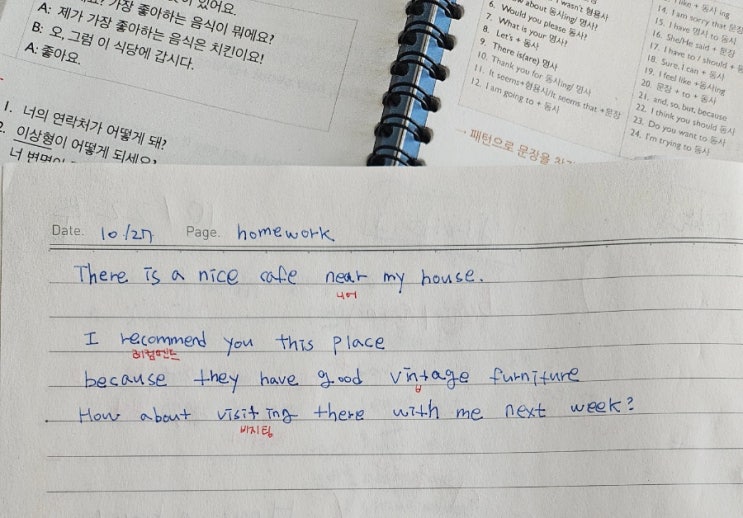 있어요.
가장 좋아하는 음식이 뭐예요?
A: 제가 가장 좋아하는 음식은 치킨이요!
B: 오, 그럼 이 식당에 갑시다.
A: 좋아요.
1. 너의 연락처가 어떻게 돼?
2. 이상형이 어떻게 되세요?
wasn't 형용사
about 동사ing/ 명사?
6. Would you please 동사?
7. What is your 명사?
8. Let's + 동사
9. There is(are) 명사
10. Thank you for 동사ing/ 명사
11. It seems+형용사/It seems that +문장
12. I am going to + 동사
→ 패턴으로 문장을
like + 동사 ing
14. I am sorry that 문장
15. I have 명사 to 동사
16. She/He said + 문장
17. I have to / should +
18. Sure, I can + 동사
19. I feel like +동사ing
20. 문장 + to + 동사
21. and, so, but, because
22. I think you should 동사
23. Do you want to 동사
24. I'm trying to 동사
Date. 10/27 Page. homework
There is a nice cafe near my house.
니어
I recommend you this place
레컴멘드
because they have good vintage furniture
How about visiting there with me next week?
비지팅